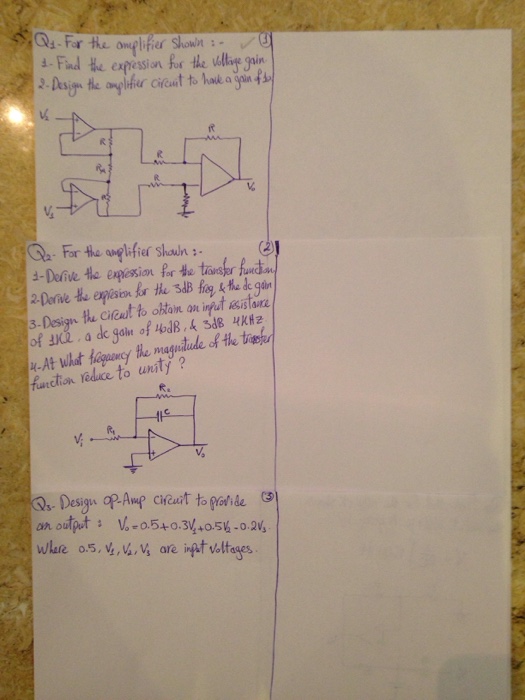 Q1- For the amplifier shown :- (1)
1- Find the expression for the voltage gain
2- Design the amplifier circuit to have a gain of
V2
R
R
R
R
R
V1
Vo
Q2- For the amplifier shown :- (2)
1- Derive the expression for the transfer function
2- Derive the expression for the 3dB freq. & the dc gain
3- Design the circuit to obtain an input resistance
of 1KΩ, a dc gain of 40dB, & 3dB 4KHz
4- At what frequency the magnitude of the transfer
function reduce to unity ?
R2
C
R1
Vi
Vo
Q3- Design op-Amp circuit to provide (3)
an output : Vo = 0.5 + 0.3V1 + 0.5V2 - 0.2V3.
Where 0.5, V1, V2, V3 are input voltages.